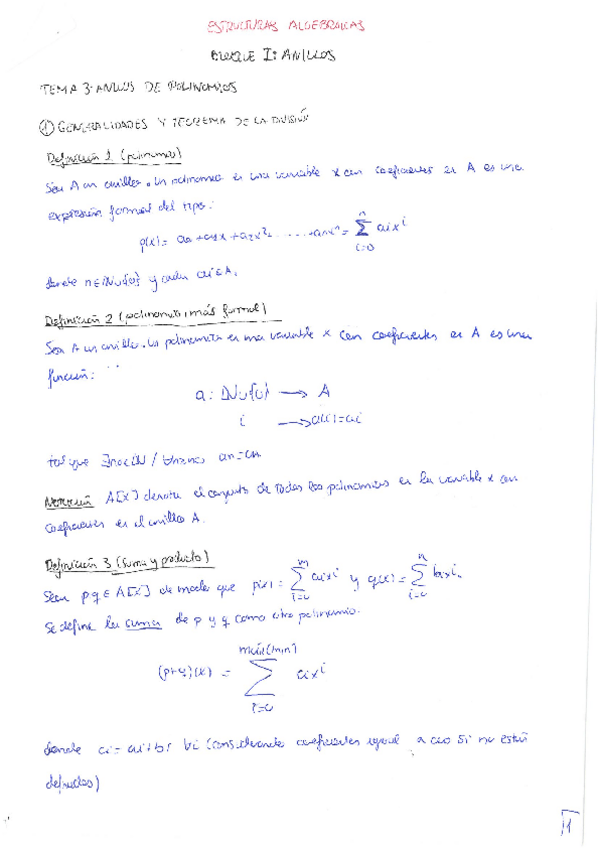 ESTRUCTURAS ALGEBRAICAS
BLOQUE I: ANILLOS
TEMA 3: ANILLOS DE POLINOMIOS
① GENERALIDADES Y TEOREMA DE LA DIVISIÓN
Definición 1 (polinomio)
Sea A un anillo. Un polinomio en una variable x con coeficientes en A es una
expresión formal del tipo:
p(x) = a₀ + a₁x + a₂x² + ...... + aₙxⁿ = Σ_{i=0}^{n} aᵢxⁱ
donde n∈ℕ∪{0} y cada aᵢ∈A.
Definición 2 (polinomio, más formal)
Sea A un anillo. Un polinomio en una variable x con coeficientes en A es una
función:
a: ℕ∪{0} → A
i → a(i) = aᵢ
tal que ∃n₀∈ℕ / ∀n≥n₀
Notación A[x] denota el conjunto de todos los polinomios en la variable x con
coeficientes en el anillo A.
Definición 3 (suma y producto)
Sean p, q ∈ A[x] de modo que p(x) = Σ_{i=0}^{m} aᵢxⁱ y q(x) = Σ_{i=0}^{n} bᵢxⁱ.
Se define la suma de p y q como otro polinomio.
(p+q)(x) = Σ_{i=0}^{máx(m,n)} cᵢxⁱ
donde cᵢ = aᵢ + bᵢ ∀i (considerando coeficientes igual a cero si no están
definidos)
1